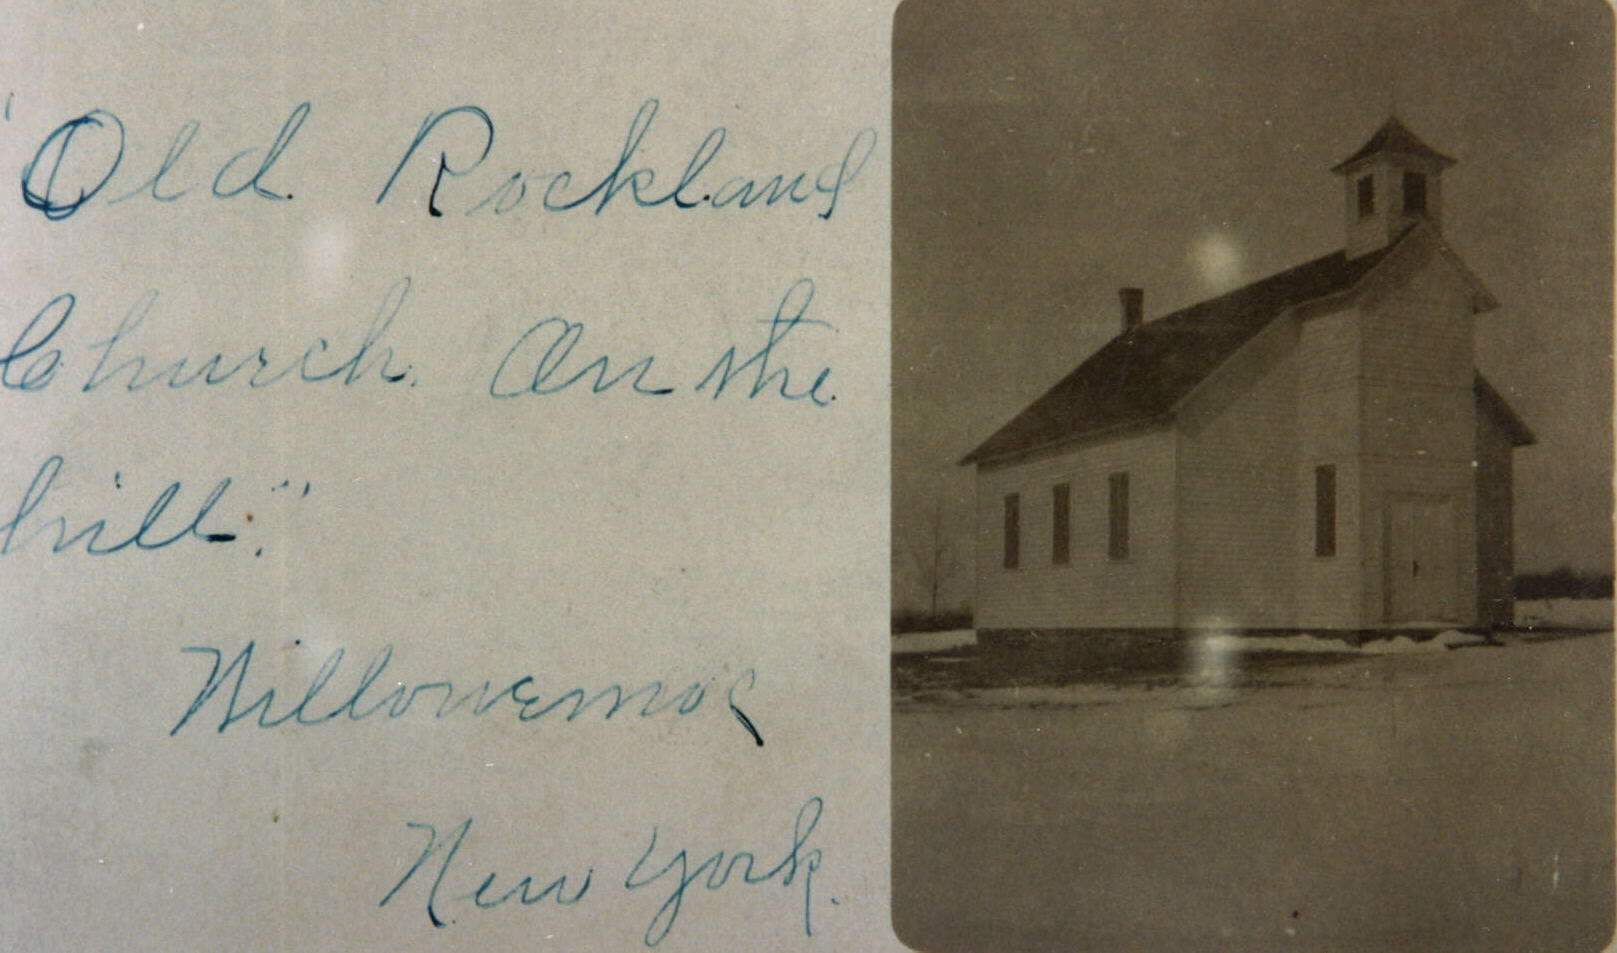 "Old Rockland
Church On the
hill."
Willowemoc
New York.